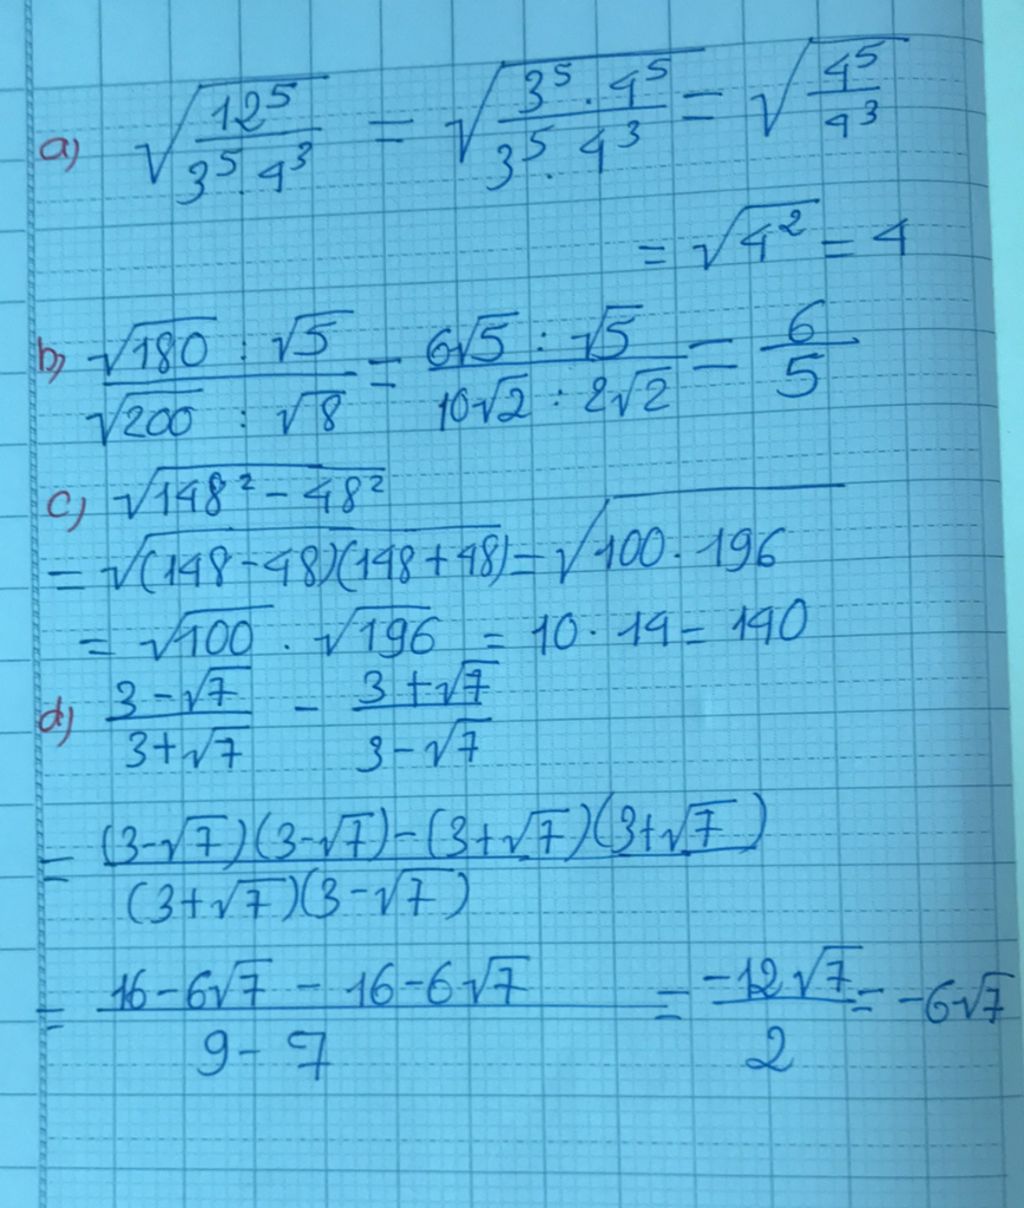 a) √(12⁵/(3⁵.4³)) = √((3⁵.4⁵)/(3⁵.4³)) = √(4⁵/4³)
= √(4²) = 4
b) (√180 : √5)/(√200 : √8) = (6√5 : √5)/(10√2 : 2√2) = 6/5
c) √(148² - 48²)
= √((148-48)(148+48)) = √(100.196)
= √100 . √196 = 10.14 = 140
d) (3-√7)/(3+√7) - (3+√7)/(3-√7)
= ((3-√7)(3-√7)-(3+√7)(3+√7))/((3+√7)(3-√7))
= (16-6√7 - 16-6√7)/(9-7) = (-12√7)/2 = -6√7